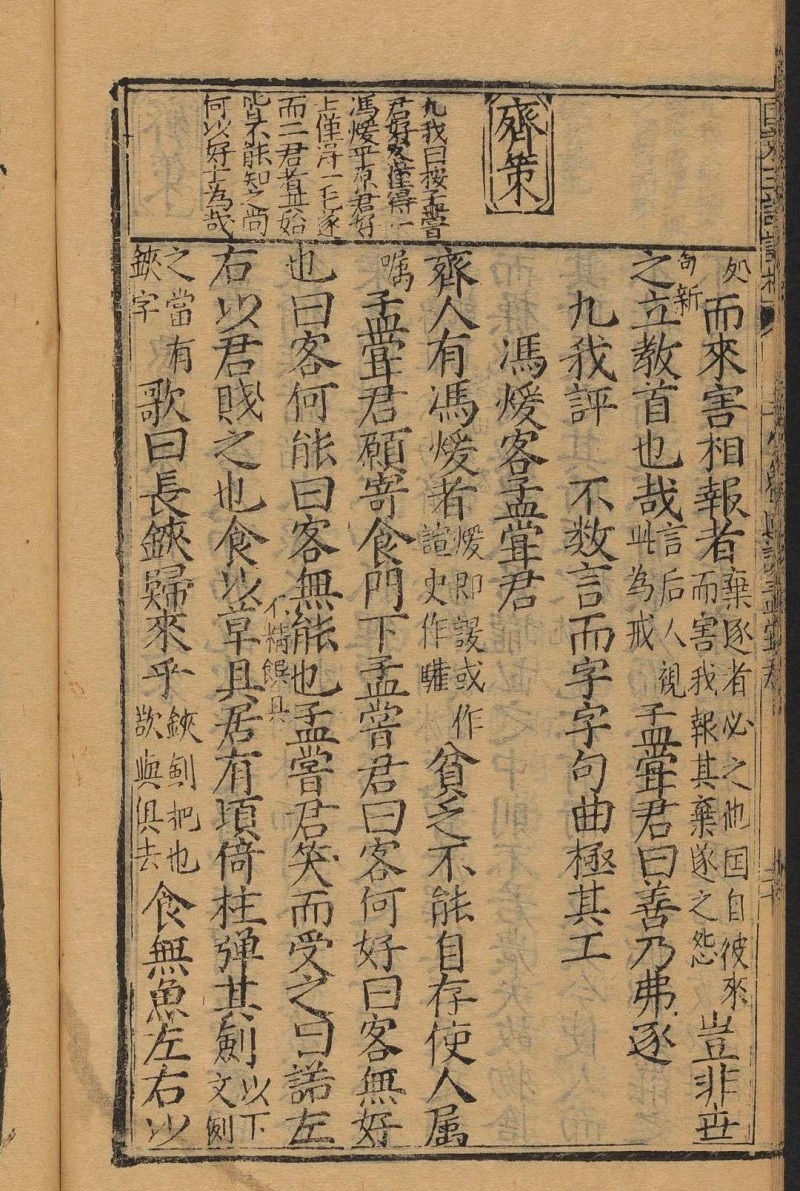 齊策
九我曰按孟嘗
君好客僅得一
馮煖平原君好
士僅得一毛遂
而二君者其始
皆不能知之尚
何以好士為哉
処而來害相報者棄逐者必之他国自彼來而害我報其棄逐之怨豈非世
句新之立教首也哉言后人視此為戒孟嘗君曰善乃弗逐
九我評 不数言而字字句曲極其工
馮煖客孟嘗君
齊人有馮煖者煖即諼或作諠史作驩貧乏不能自存使人属
嘱孟嘗君願寄食門下孟嘗君曰客何好曰客無好
也曰客何能曰客無能也孟嘗君笑而受之曰諾左
右以君賤之也食以草具不精饌具居有頃倚柱弹其劍以下文例
之當有鋏字歌曰長鋏歸來乎鋏剣把也欲與俱去食無魚左右以